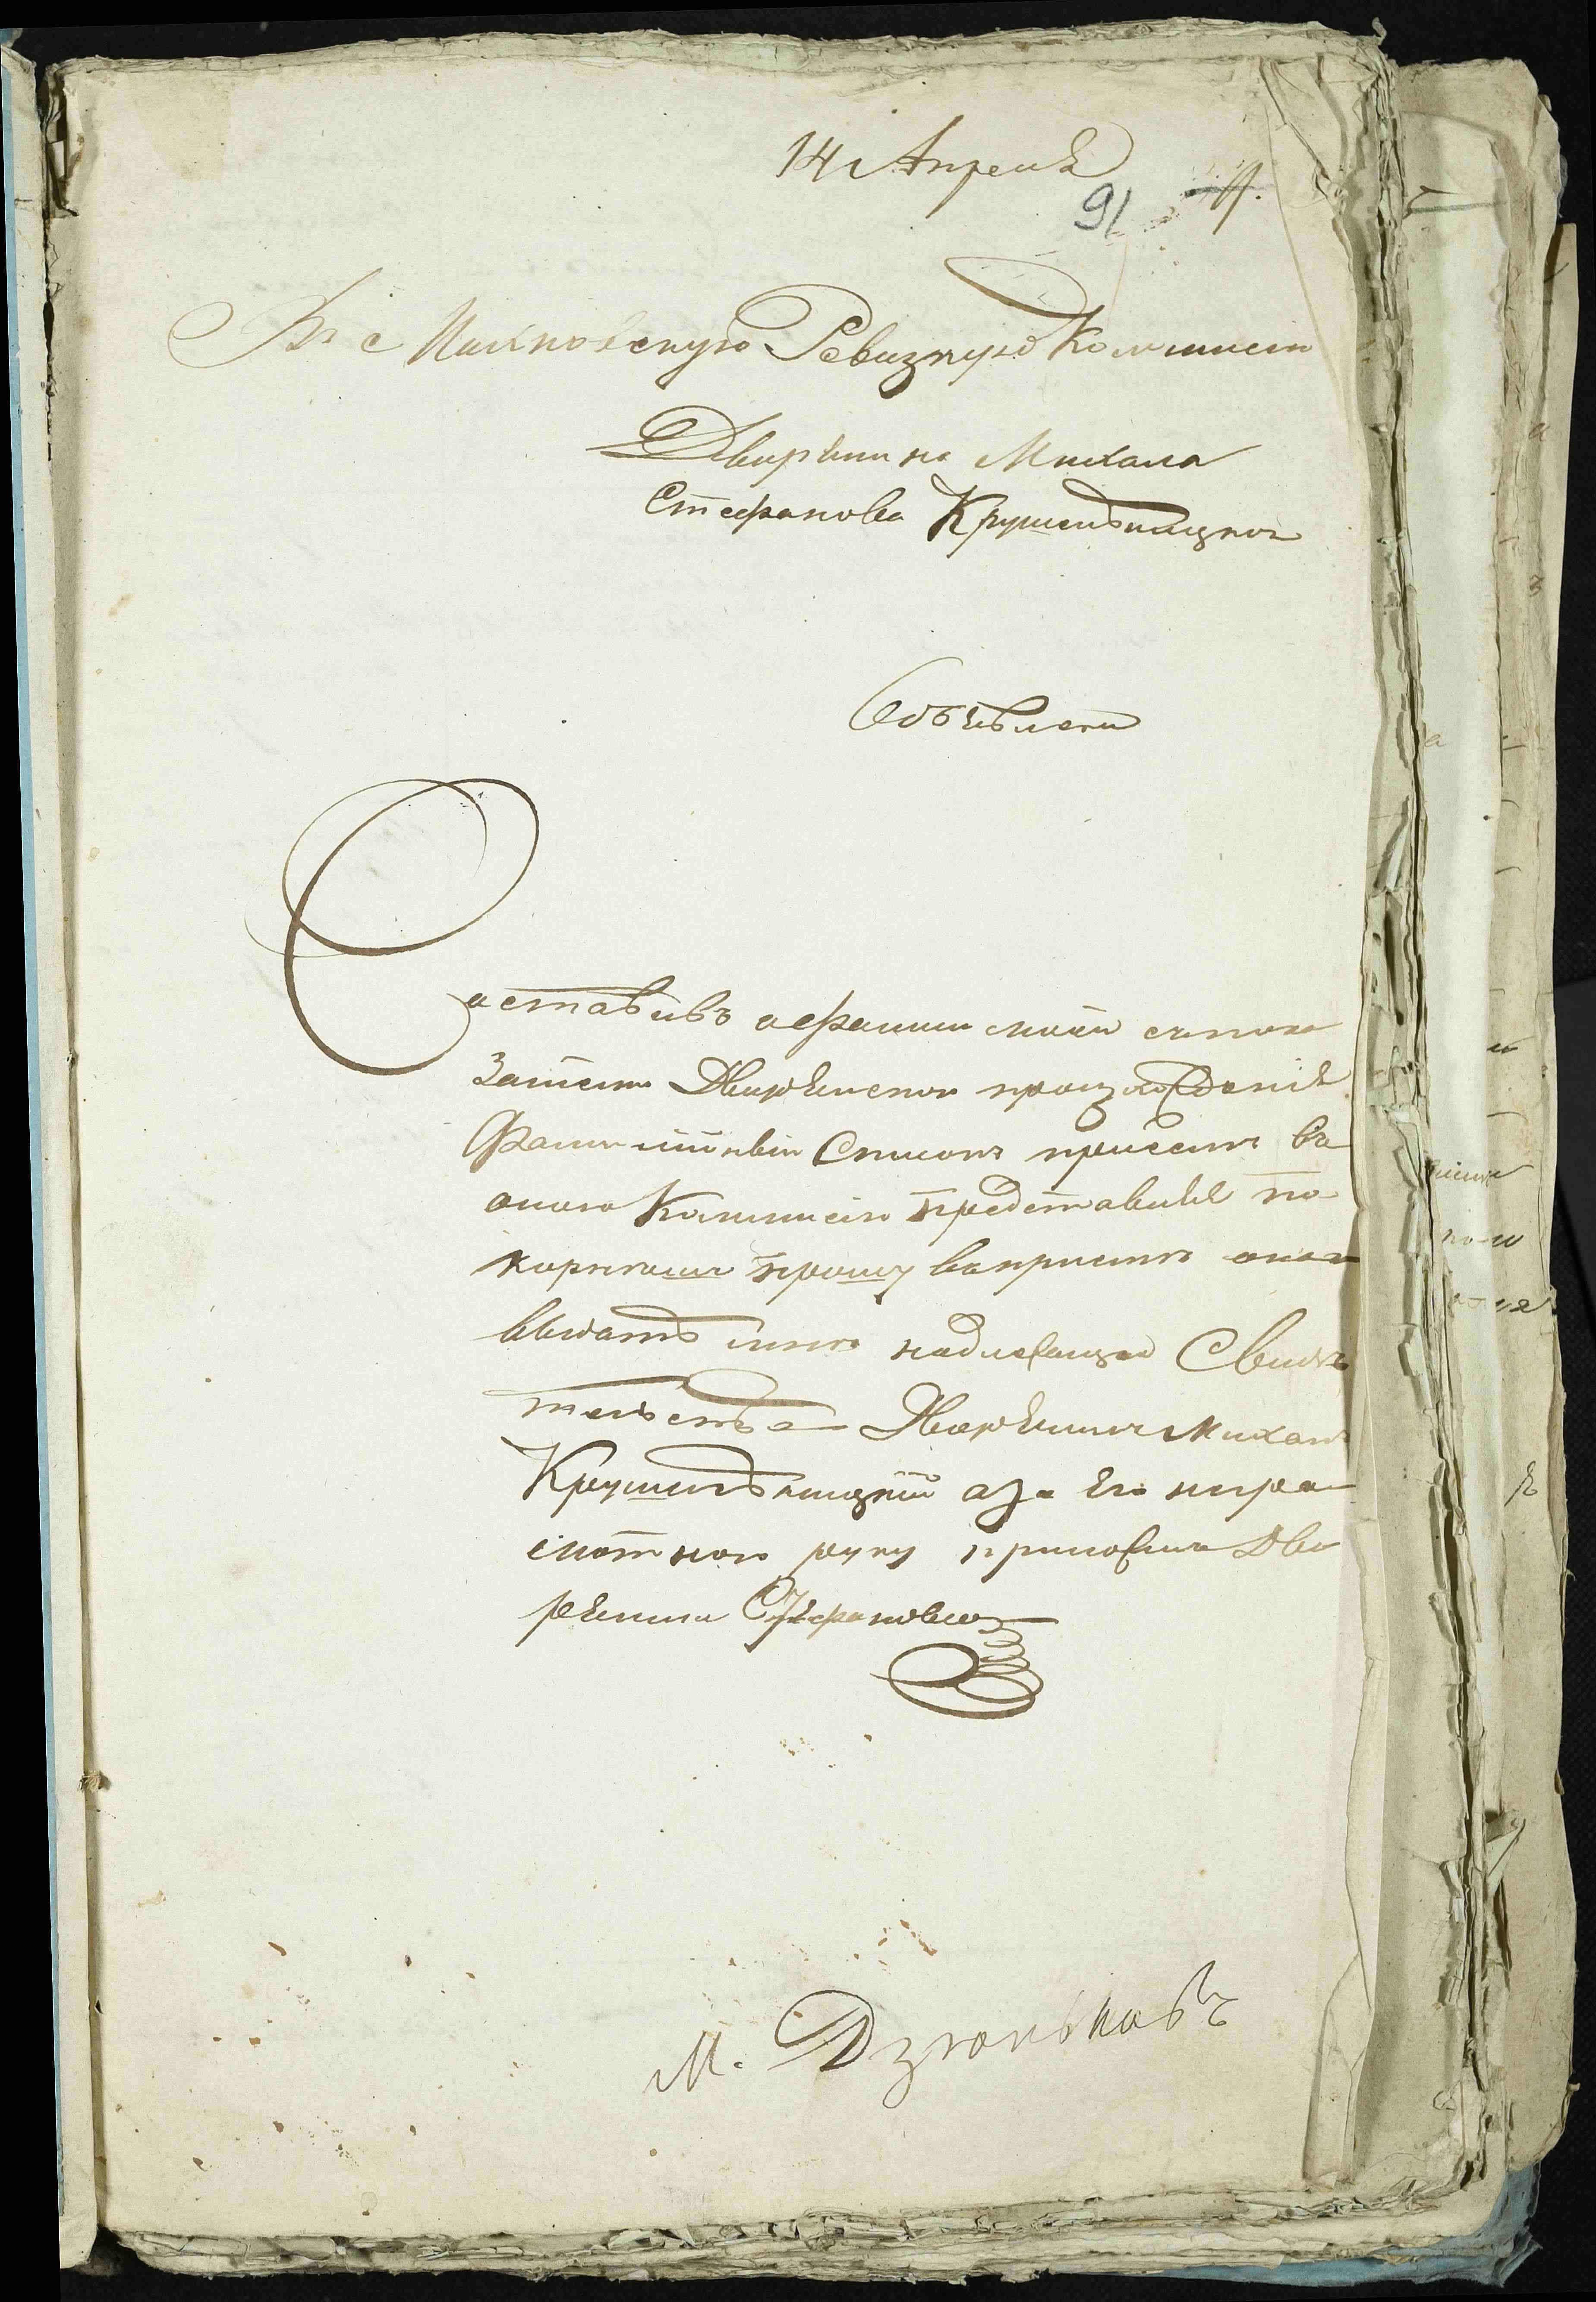 14 Апреля
91
Ревизную Комиссию
Дворянина Михала
Стефанова Крушельницкого
Объявление
Составивъ о фамилии моей спока
заниемъ Дворянского произхождения
Фамилийный Списокъ при семъ въ
оную Комиссию представляя по
корнейше прошу
выдать мне надлежащее Свиде
тельство Дворянинъ Михалъ
Крушельницкий а за его негра
мотного руку приложилъ Дво
рянинъ
М. Дзюньковъ